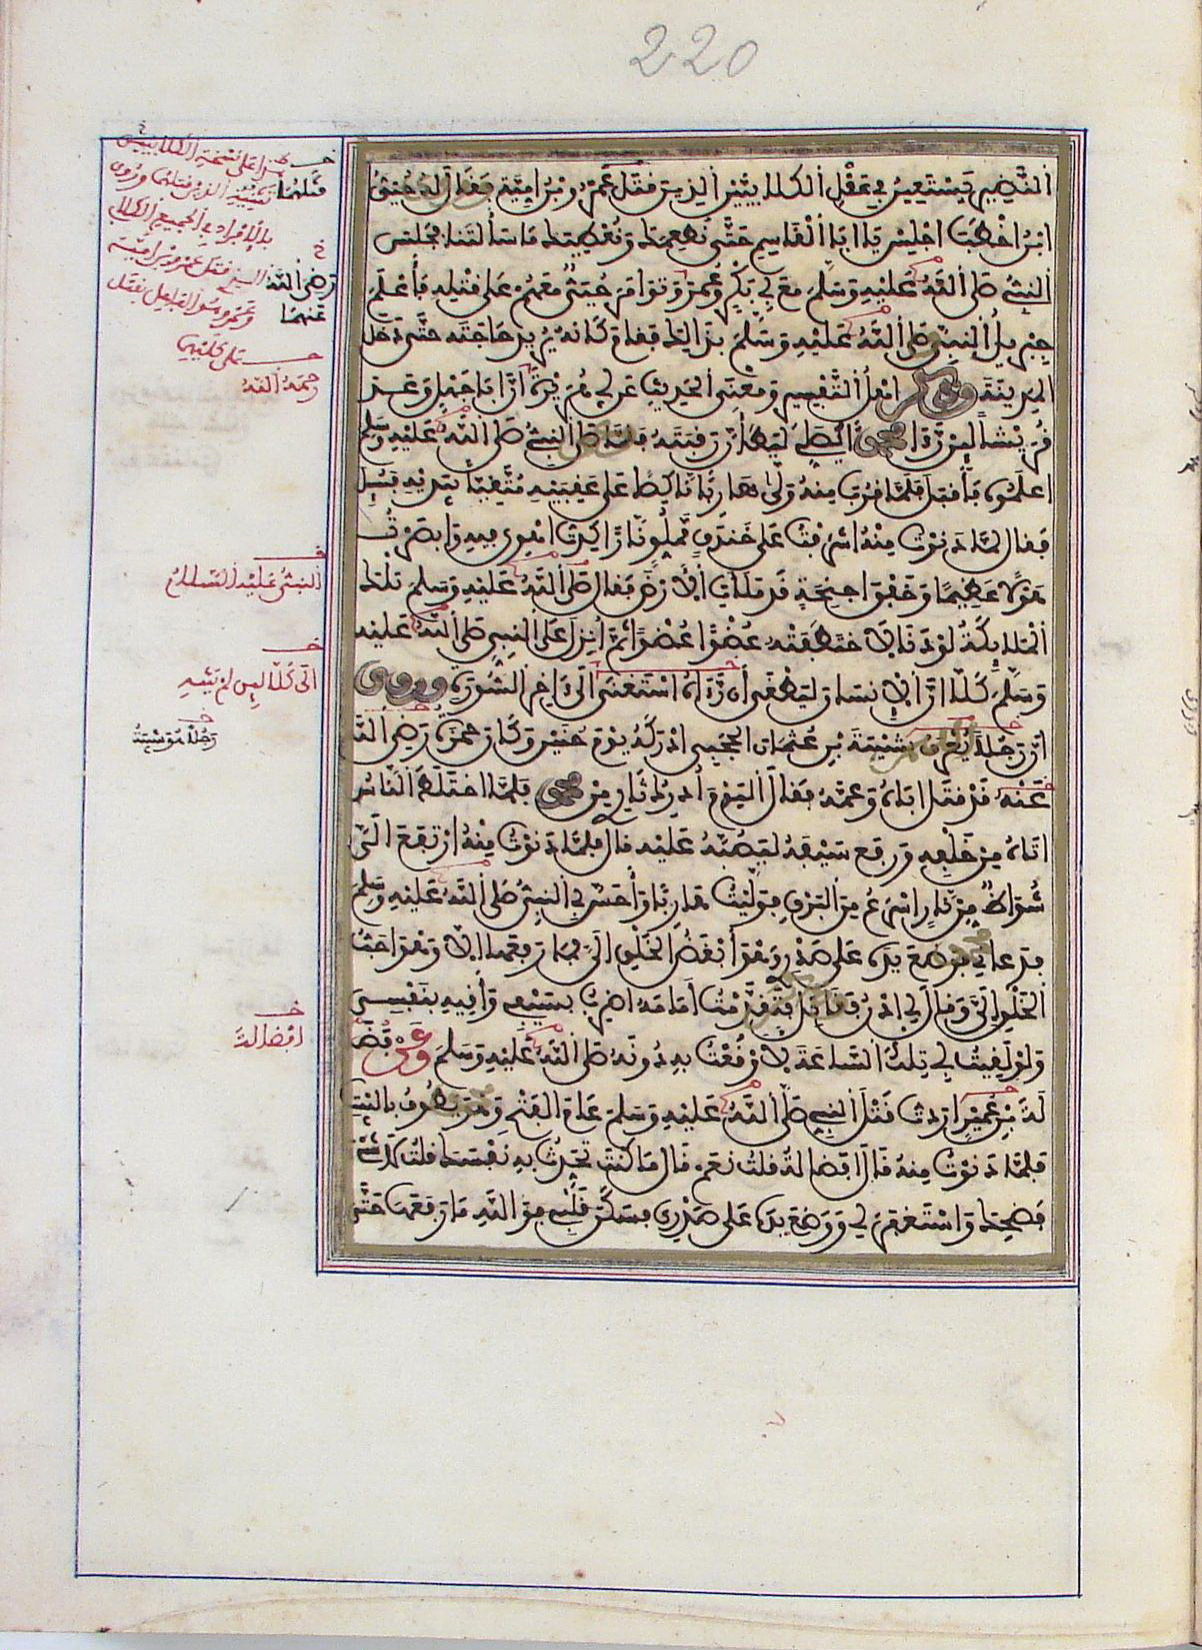 220
النَّضِيرِ يَسْتَعِينُ فِي عَقْلِ الكلابيَّيْنِ الذين قتل عمرو بن امية فقال له حُيَيُّ
ابن اخطب اجلس يا ابا القاسم حتى نطعمك ونعطيك ما سألتنا فجلس
النبي صلى الله عليه وسلم مع ابي بكر وعمر وتوامر حيي معهم على قتله فأعلم
جبريل النبي صلى الله عليه وسلم بذالك فقام كأنه يريد حاجته حتى دخل
المدينة وذكر اهل التفسير ومعنى الحديث عن ابي هريرة ان ابا جهل وعد
قريشا لين رءا محمدا يصلي ليطأن رقبته فلما صلى النبي صلى الله عليه وسلم
اعلموه فأقبل فلما قرب منه ولى هاربا ناكصا على عقبيه متقيا بيديه فسيل
فقال لما دنوت منه اشرفت على خندق مملو نارا كدت اهوي فيه وابصرت
هولا عظيما وخفق اجنحة قد ملات الارض فقال صلى الله عليه وسلم تلك
الملايكة لو دنا لاختطفته عضوا عضوا ثم انزل على النبي صلى الله عليه
وسلم كلا ان الانسان ليطغى أن رءاه استغنى الى ءاخر السورة وروي
ان رجلا يعرف بشيبة بن عثمان الحجبي ادركه يوم حنين وكان حمزة رضي الله
عنه قد قتل اباه وعمه فقال اليوم أدرك ثاري من محمد فلما اختلط الناس
اتاه من خلفه ورفع سيفه ليصبه عليه قال فلما دنوت منه ارتفع الي
شواظ من نار اسرع من البرق فوليت هاربا وأحس بي النبي صلى الله عليه وسلم
فدعاني فوضع يده على صدري وهو أبغض الخلق الي فما رفعها الا وهو احب
الخلق الي وقال لي ادن فقاتل فتقدمت أمامه اضرب بسيفي وأقيه بنفسي
ولو لقيت ابي تلك الساعة لاوقعت به دونه صلى الله عليه وسلم وعن فضا
لة بن عمير اردت قتل النبي صلى الله عليه وسلم عام الفتح وهو يطوف بالبيت
فلما دنوت منه قال افضالة قلت نعم قال ما كنت تحدث به نفسك قلت لا شي
فضحك واستغفر لي ووضع يده على صدري فسكن قلبي فوالله ما رفعها حتى
قتلهما
رضي الله
عنهما
رحمه الله
النبي عليه السلام
الى كلا لين لم ينته
افضالة